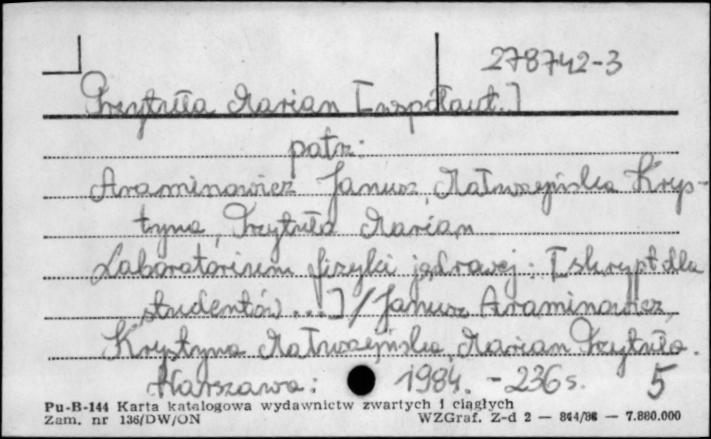 278742-3
Przytuła Marian [współaut.]
patrz:
Araminowicz Janusz, Małuszyńska Krys-
tyna, Przytuła Marian
Laboratorium fizyki jądrowej : [skrypt dla
studentów ...] / Janusz Araminowicz,
Krystyna Małuszyńska, Marian Przytuła.
Warszawa : 1984. - 236 s. 5
Pu-B-144 Karta katalogowa wydawnictw zwartych i ciągłych
Zam. nr 136/DW/ON WZGraf. Z-d 2 — 844/86 — 7.880.000